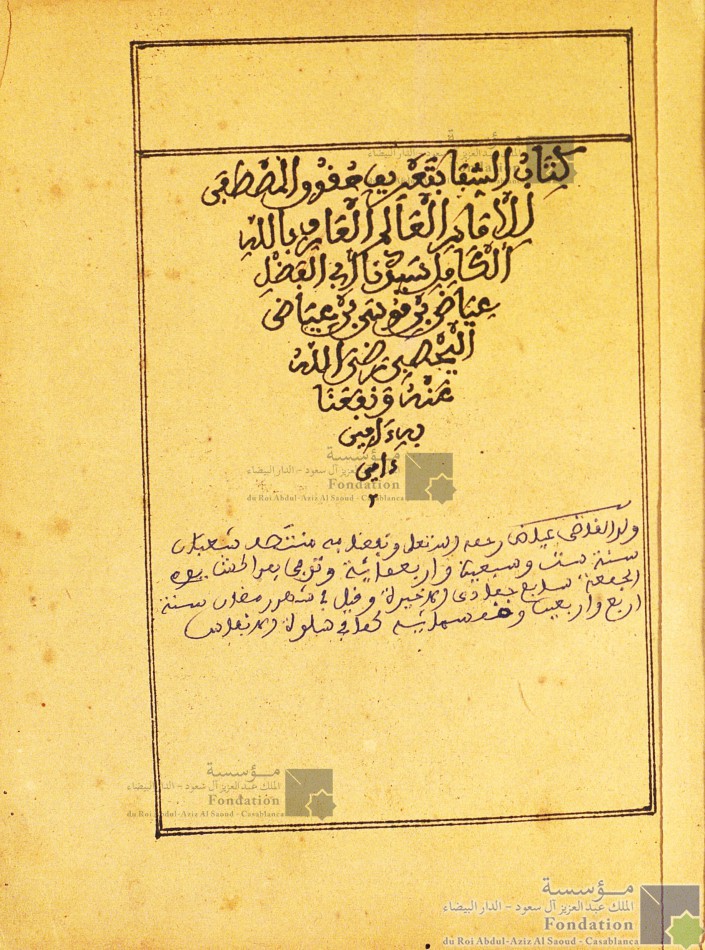 كِتَابُ الشِّفَا بِتَعْرِيفِ حُقُوقِ الْمُصْطَفَى
لِلْإِمَامِ الْعَالِمِ الْعَارِفِ بِاللهِ
الْكَامِلِ سَيِّدِنَا أَبِي الْفَضْلِ
عِيَاضِ بْنِ مُوسَى بْنِ عِيَاضِ
الْيَحْصُبِي رَضِيَ اللهُ
عَنْهُ وَنَفَعَنَا
بِهِ ءَامِين
ءامين
م
ولد القاضي عياض رحمه الله تعلى ونفعنا به منتصف شعبان
سنة ست وسبعين واربعمائة وتوفي بمراكش يوم
الجمعة سابع جمادى الاخيرة وقيل في شهر رمضان سنة
اربع واربعين وخمسمائة كما في سلوة الانفاس
مؤسسة
الملك عبد العزيز آل سعود - الدار البيضاء
Fondation
du Roi Abdul-Aziz Al Saoud - Casablanca
مؤسسة
الملك عبد العزيز آل سعود - الدار البيضاء
Fondation
du Roi Abdul-Aziz Al Saoud - Casablanca
مؤسسة
الملك عبد العزيز آل سعود - الدار البيضاء
Fondation
du Roi Abdul-Aziz Al Saoud - Casablanca